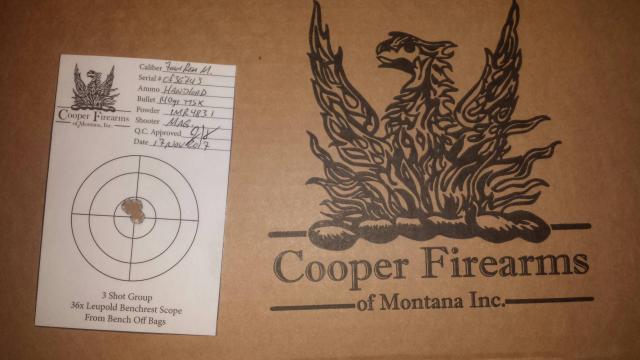 Caliber 7mm Rem M.
Serial #
Ammo HANDLOAD
Bullet 140gr TSX
Powder IMR 4831
Shooter MAG.
Q.C. Approved
Date 17 Nov 2017
Cooper Firearms
of Montana, Inc.
3 Shot Group
36x Leupold Benchrest Scope
From Bench Off Bags
Cooper Firearms
of Montana Inc.